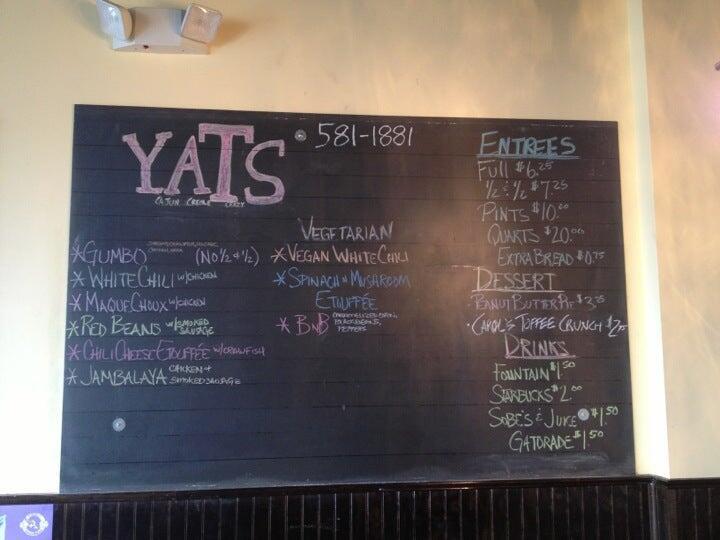 YATS
CAJUN CREOLE CRAZY
581-1881
*GUMBO (NO ½ & ½)
*WHITE CHILI W/CHICKEN
*MAQUE CHOUX W/CHICKEN
*RED BEANS W/SMOKED
SAUSAGE
*CHILI CHEESE ETOUFFÉE W/CRAWFISH
*JAMBALAYA CHICKEN +
SMOKED SAUSAGE
VEGETARIAN
*VEGAN WHITE CHILI
*SPINACH N MUSHROOM
ETOUFFÉE
*BNB CARAMELIZED CORN,
BLACK BEANS,
PEPPERS
ENTREES
FULL $6.25
½ & ½ $7.25
PINTS $10.00
QUARTS $20.00
EXTRA BREAD $0.75
DESSERT
·PEANUT BUTTER PIE $3.25
·CAROL'S TOFFEE CRUNCH
DRINKS
FOUNTAIN $1.50
STARBUCKS $2.00
SOBE'S & JUICE $1.50
GATORADE $1.50